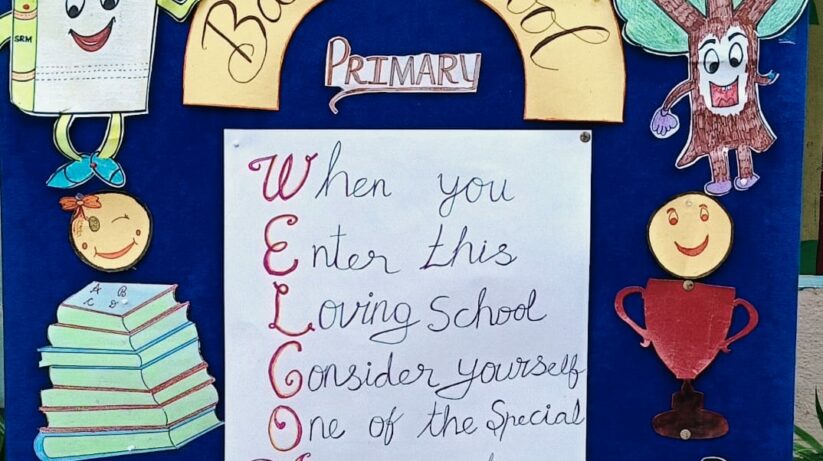 Ba
ool
SRM
PRIMARY
When you
Enter this
Loving School
Consider yourself
One of the Special
A B
C D